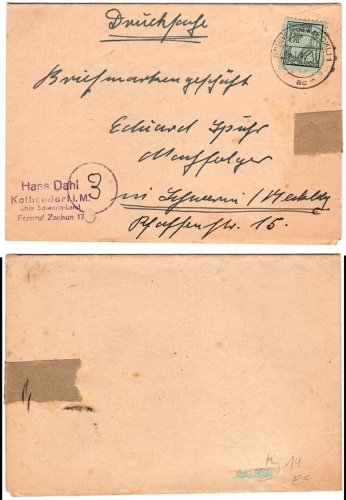 Drucksache
Briefmarkengeschäft
Eduard Spuhr
Nachfolger
in Schwerin / Mecklbg
Pfaffenstr. 15.
Hans Dahl
Kothendorf i. M.
über Schwerin-Land
Fernruf Zachun 17
3
14